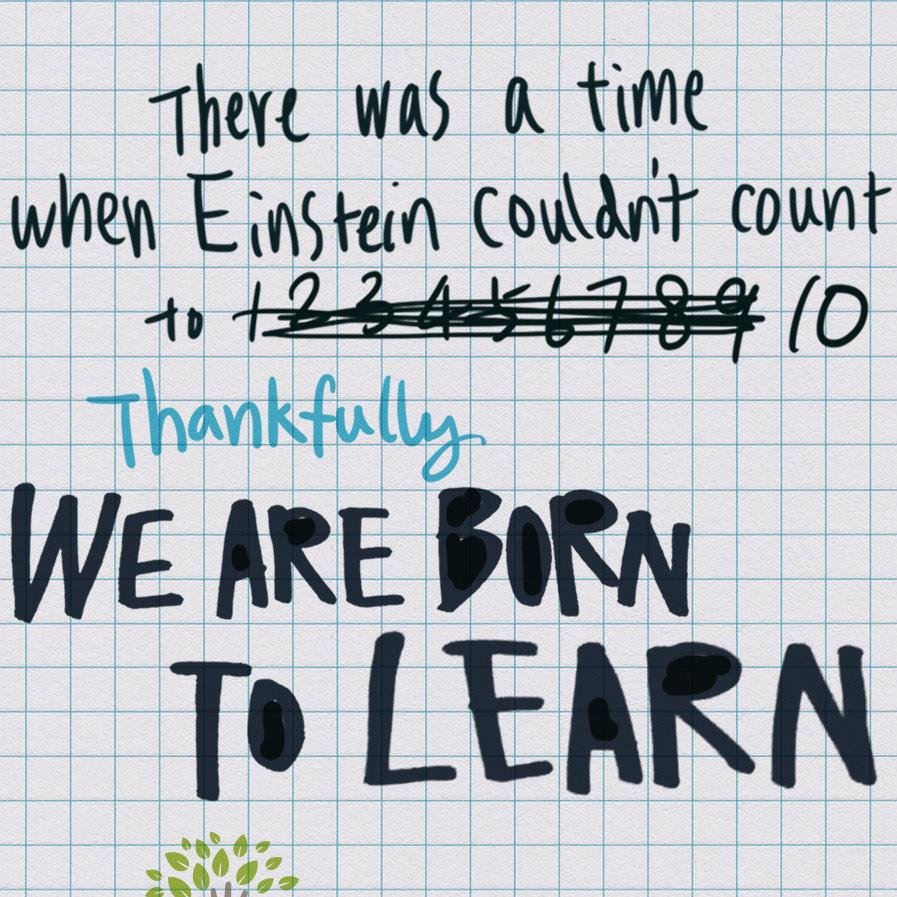 There was a time
when Einstein couldn't count
to 1 2 3 4 5 6 7 8 9 10
Thankfully
WE ARE BORN
TO LEARN